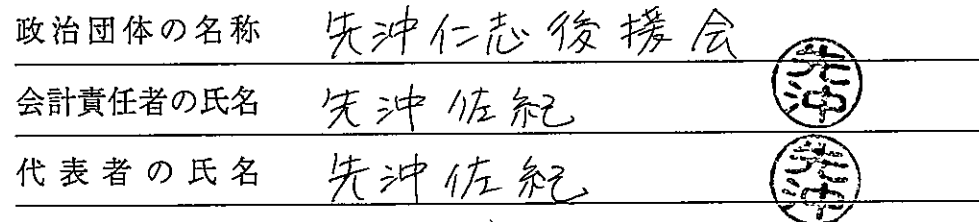 政治団体の名称 先沖仁志後援会
会計責任者の氏名 先沖佐紀 先沖
代表者の氏名 先沖佐紀 先沖